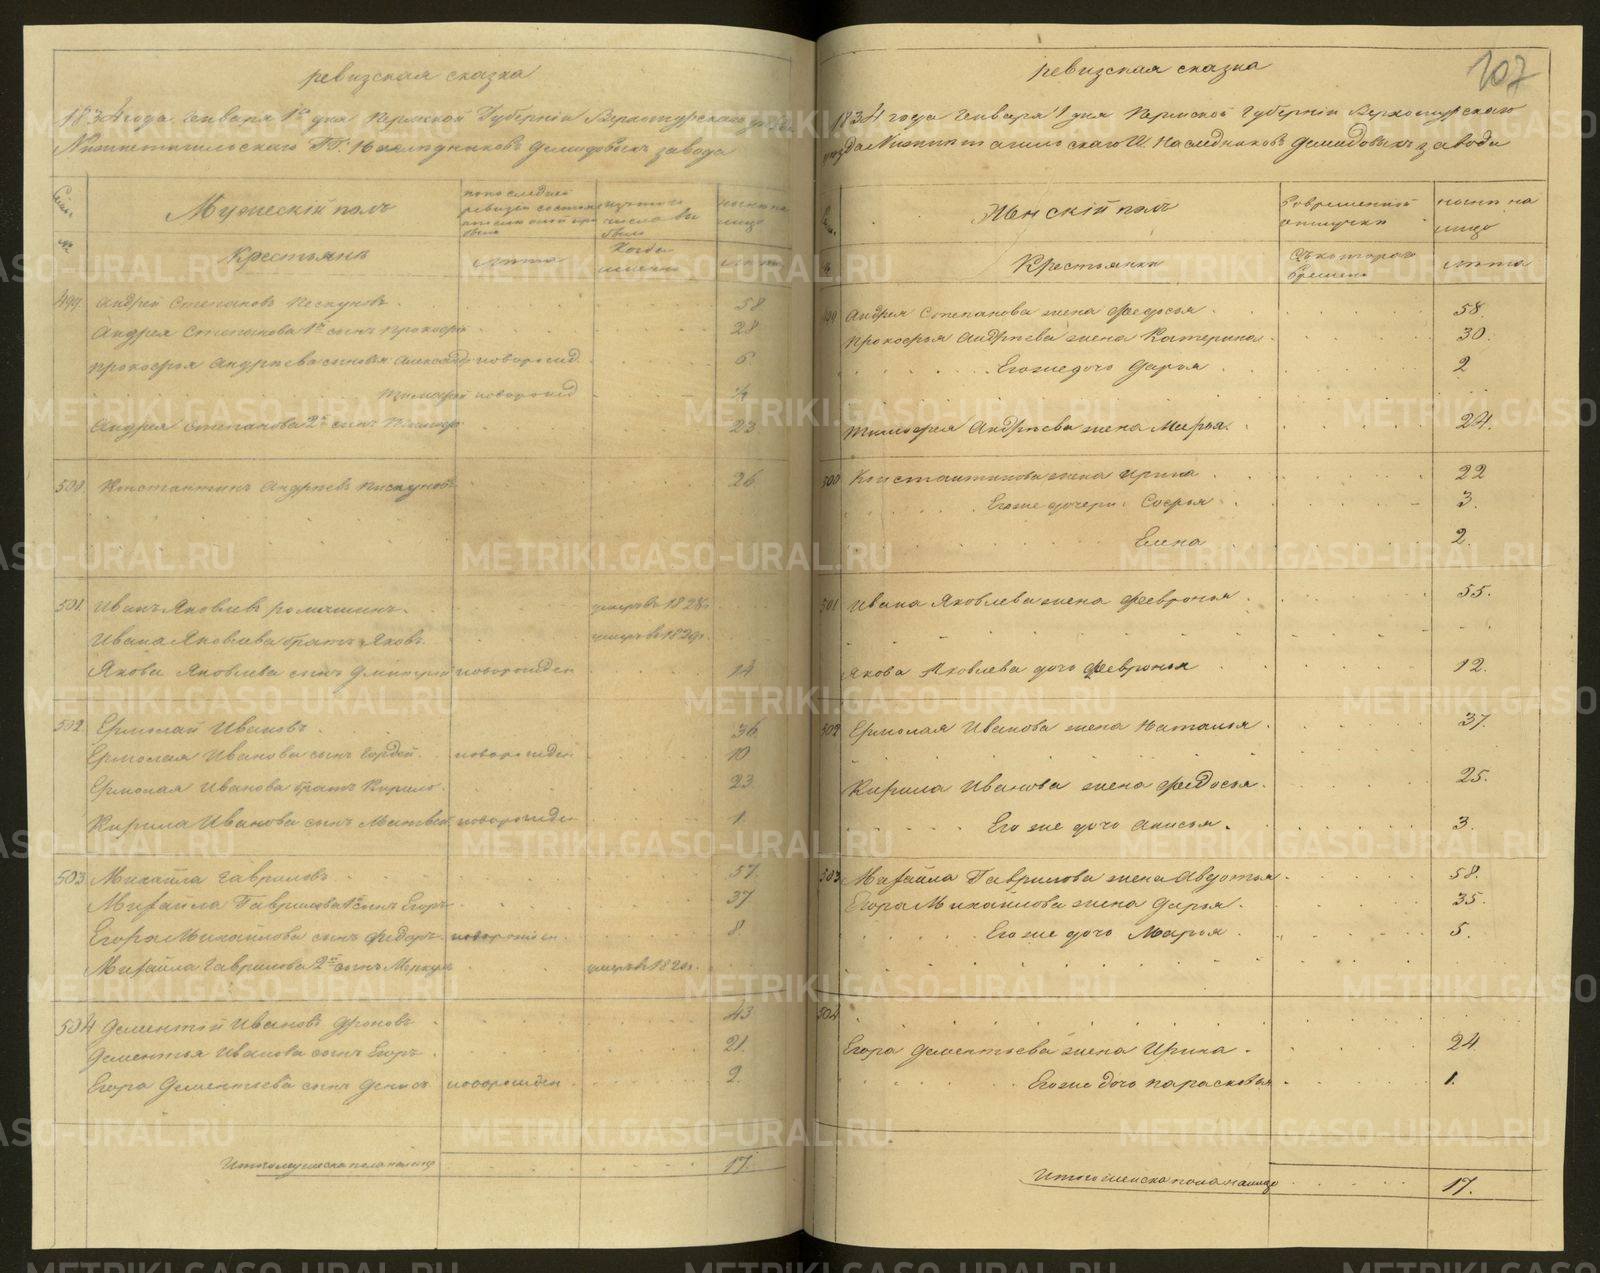 ревизская сказка
1834 года Генваря 1го дня Пермской Губернiи Верхотурскаго уезда
Нижнетагильскаго ГГ. Наследниковъ Демидовыхъ завода
Мужескiй полъ
по последней ревизiи состояло
изъ того числа выбыло
ныне на лицо
Крестьянъ
лета
Когда именно
лета
499. Андрей Степановъ Пескуновъ. 58
Андрея Степанова 1й сынъ Прокофей 28
Прокофья Андреева сыновья Александр новорожд. 6
Тимофей новорожд. ½
Андрея Степанова 2й сынъ 23
500. Константинъ Андреевъ Пискуновъ 26
501. Иванъ Яковлевъ Ромашинъ. умеръ въ 1828г.
Ивана Яковлева братъ Яковъ умеръ въ 1829г.
Якова Яковлева сынъ Дмитрей новорожден 14
502. Ермолай Ивановъ. 36
Ермолая Иванова сынъ Гордей. новорожден. 10
Ермолая Иванова братъ Кирило. 23
Кирила Иванова сынъ Матвей новорожден 1.
503. Михайла Гавриловъ 57.
Михайла Гаврилова 1й сынъ Егоръ 37
Егора Михайлова сынъ Федоръ новорожден. 8.
Михайла Гаврилова 2й сынъ Меркул умеръ в 1829г.
504 Дементiй Ивановъ Дроновъ 43
Дементья Иванова сынъ Егоръ. 21.
Егора Дементьева сынъ Денисъ новорожден 2.
Итого мужеска пола на лицо 17.
107
ревизская сказка
1834 года Генваря 1 дня Пермской Губернiи Верхотурскаго
уезда Нижнетагильскаго Наследниковъ Демидовыхъ завода
Женскiй полъ
Во временной отлучки
ныне на лицо
Крестьянки
Съ котораго времени
лета
499 Андрея Степанова жена Федосья. 58.
Прокофья Андреева жена Катерина. 30.
Его же дочь Дарья 2
Тимофея Андреева жена Марья. 24.
500 Константинова жена Ирина 22
Его же дочери: Софья 3.
Елена 2.
501 Ивана Яковлева жена Февронья 55.
Якова Яковлева дочь Февронья 12.
502 Ермолая Иванова жена Наталья 37.
Кирила Иванова жена Федосья. 25.
Его же дочь Анисья. 3.
503 Михайла Гаврилова жена Авдотья 58.
Егора Михайлова жена Дарья. 35.
Его же дочь Марья. 5.
504
Егора Дементьева жена Ирина. 24
Его же дочь Парасковья 1.
Итого женска пола на лицо 17.
METRIKI.GASO-URAL.RU